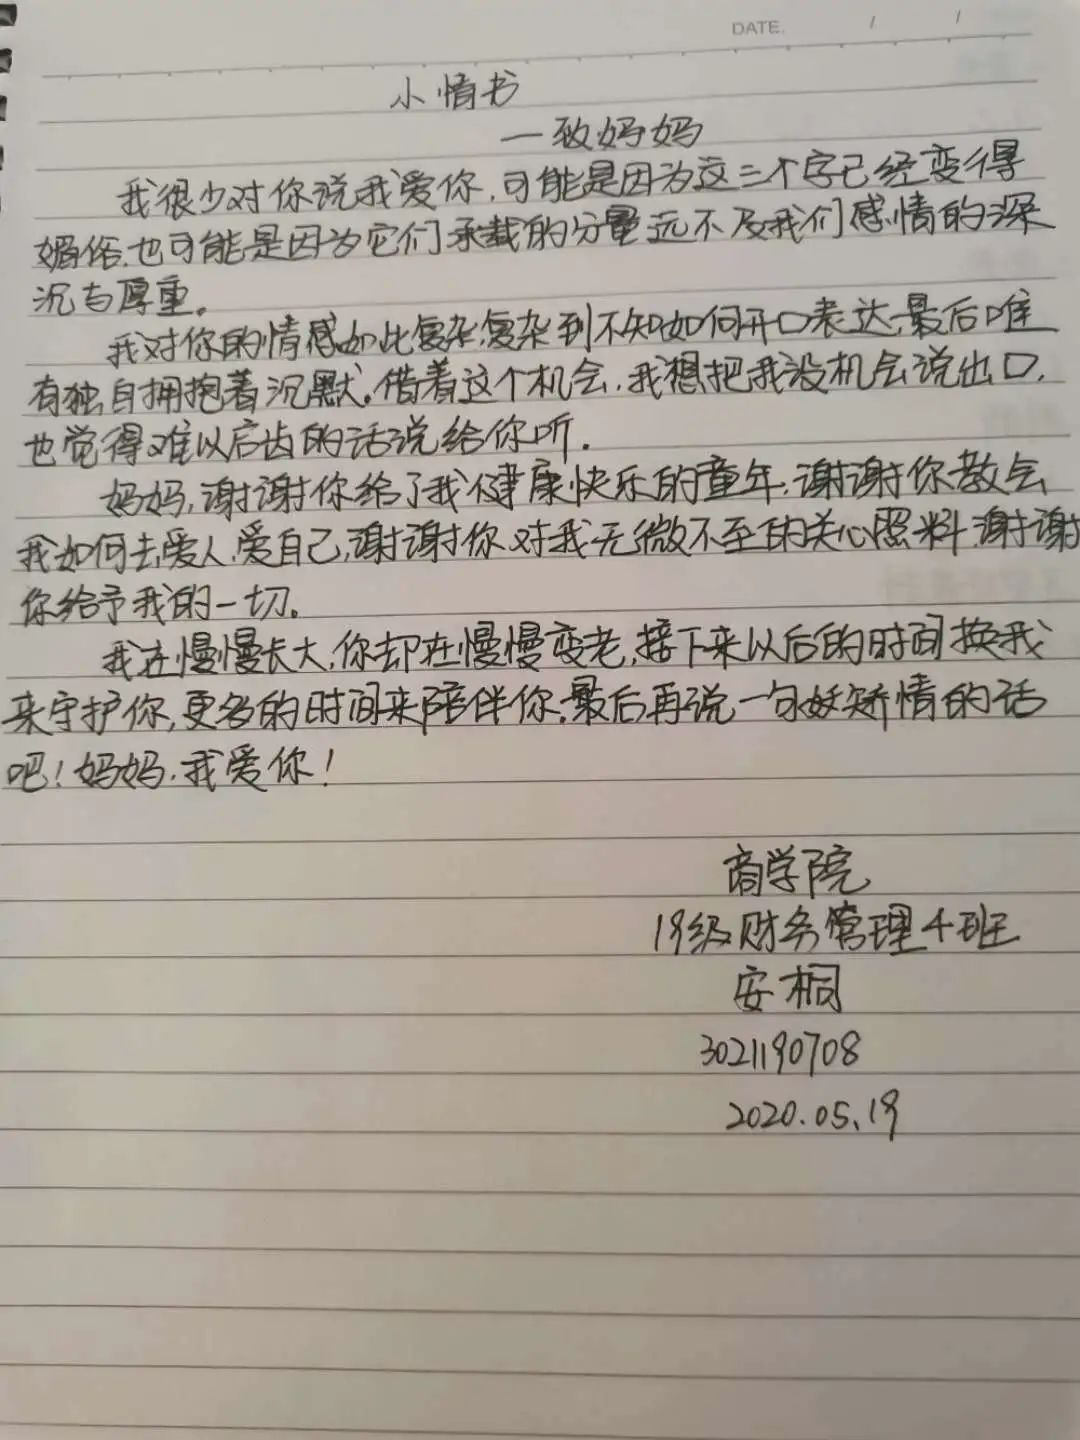 DATE. / /
小情书
—致妈妈
我很少对你说我爱你,可能是因为这三个字已经变得
媚俗,也可能是因为它们承载的分量远不及我们感情的深
沉与厚重。
我对你的情感如此复杂,复杂到不知如何开口表达,最后唯
有独自拥抱着沉默。借着这个机会,我想把我没机会说出口,
也觉得难以启齿的话说给你听.
妈妈,谢谢你给了我健康快乐的童年,谢谢你教会
我如何去爱人,爱自己,谢谢你对我无微不至的关心照料,谢谢
你给予我的一切。
我在慢慢长大,你却在慢慢变老,接下来以后的时间换我
来守护你,更多的时间来陪伴你.最后再说一句矫情的话
吧!妈妈,我爱你!
商学院
19级财务管理4班
安桐
3021190708
2020.05.19